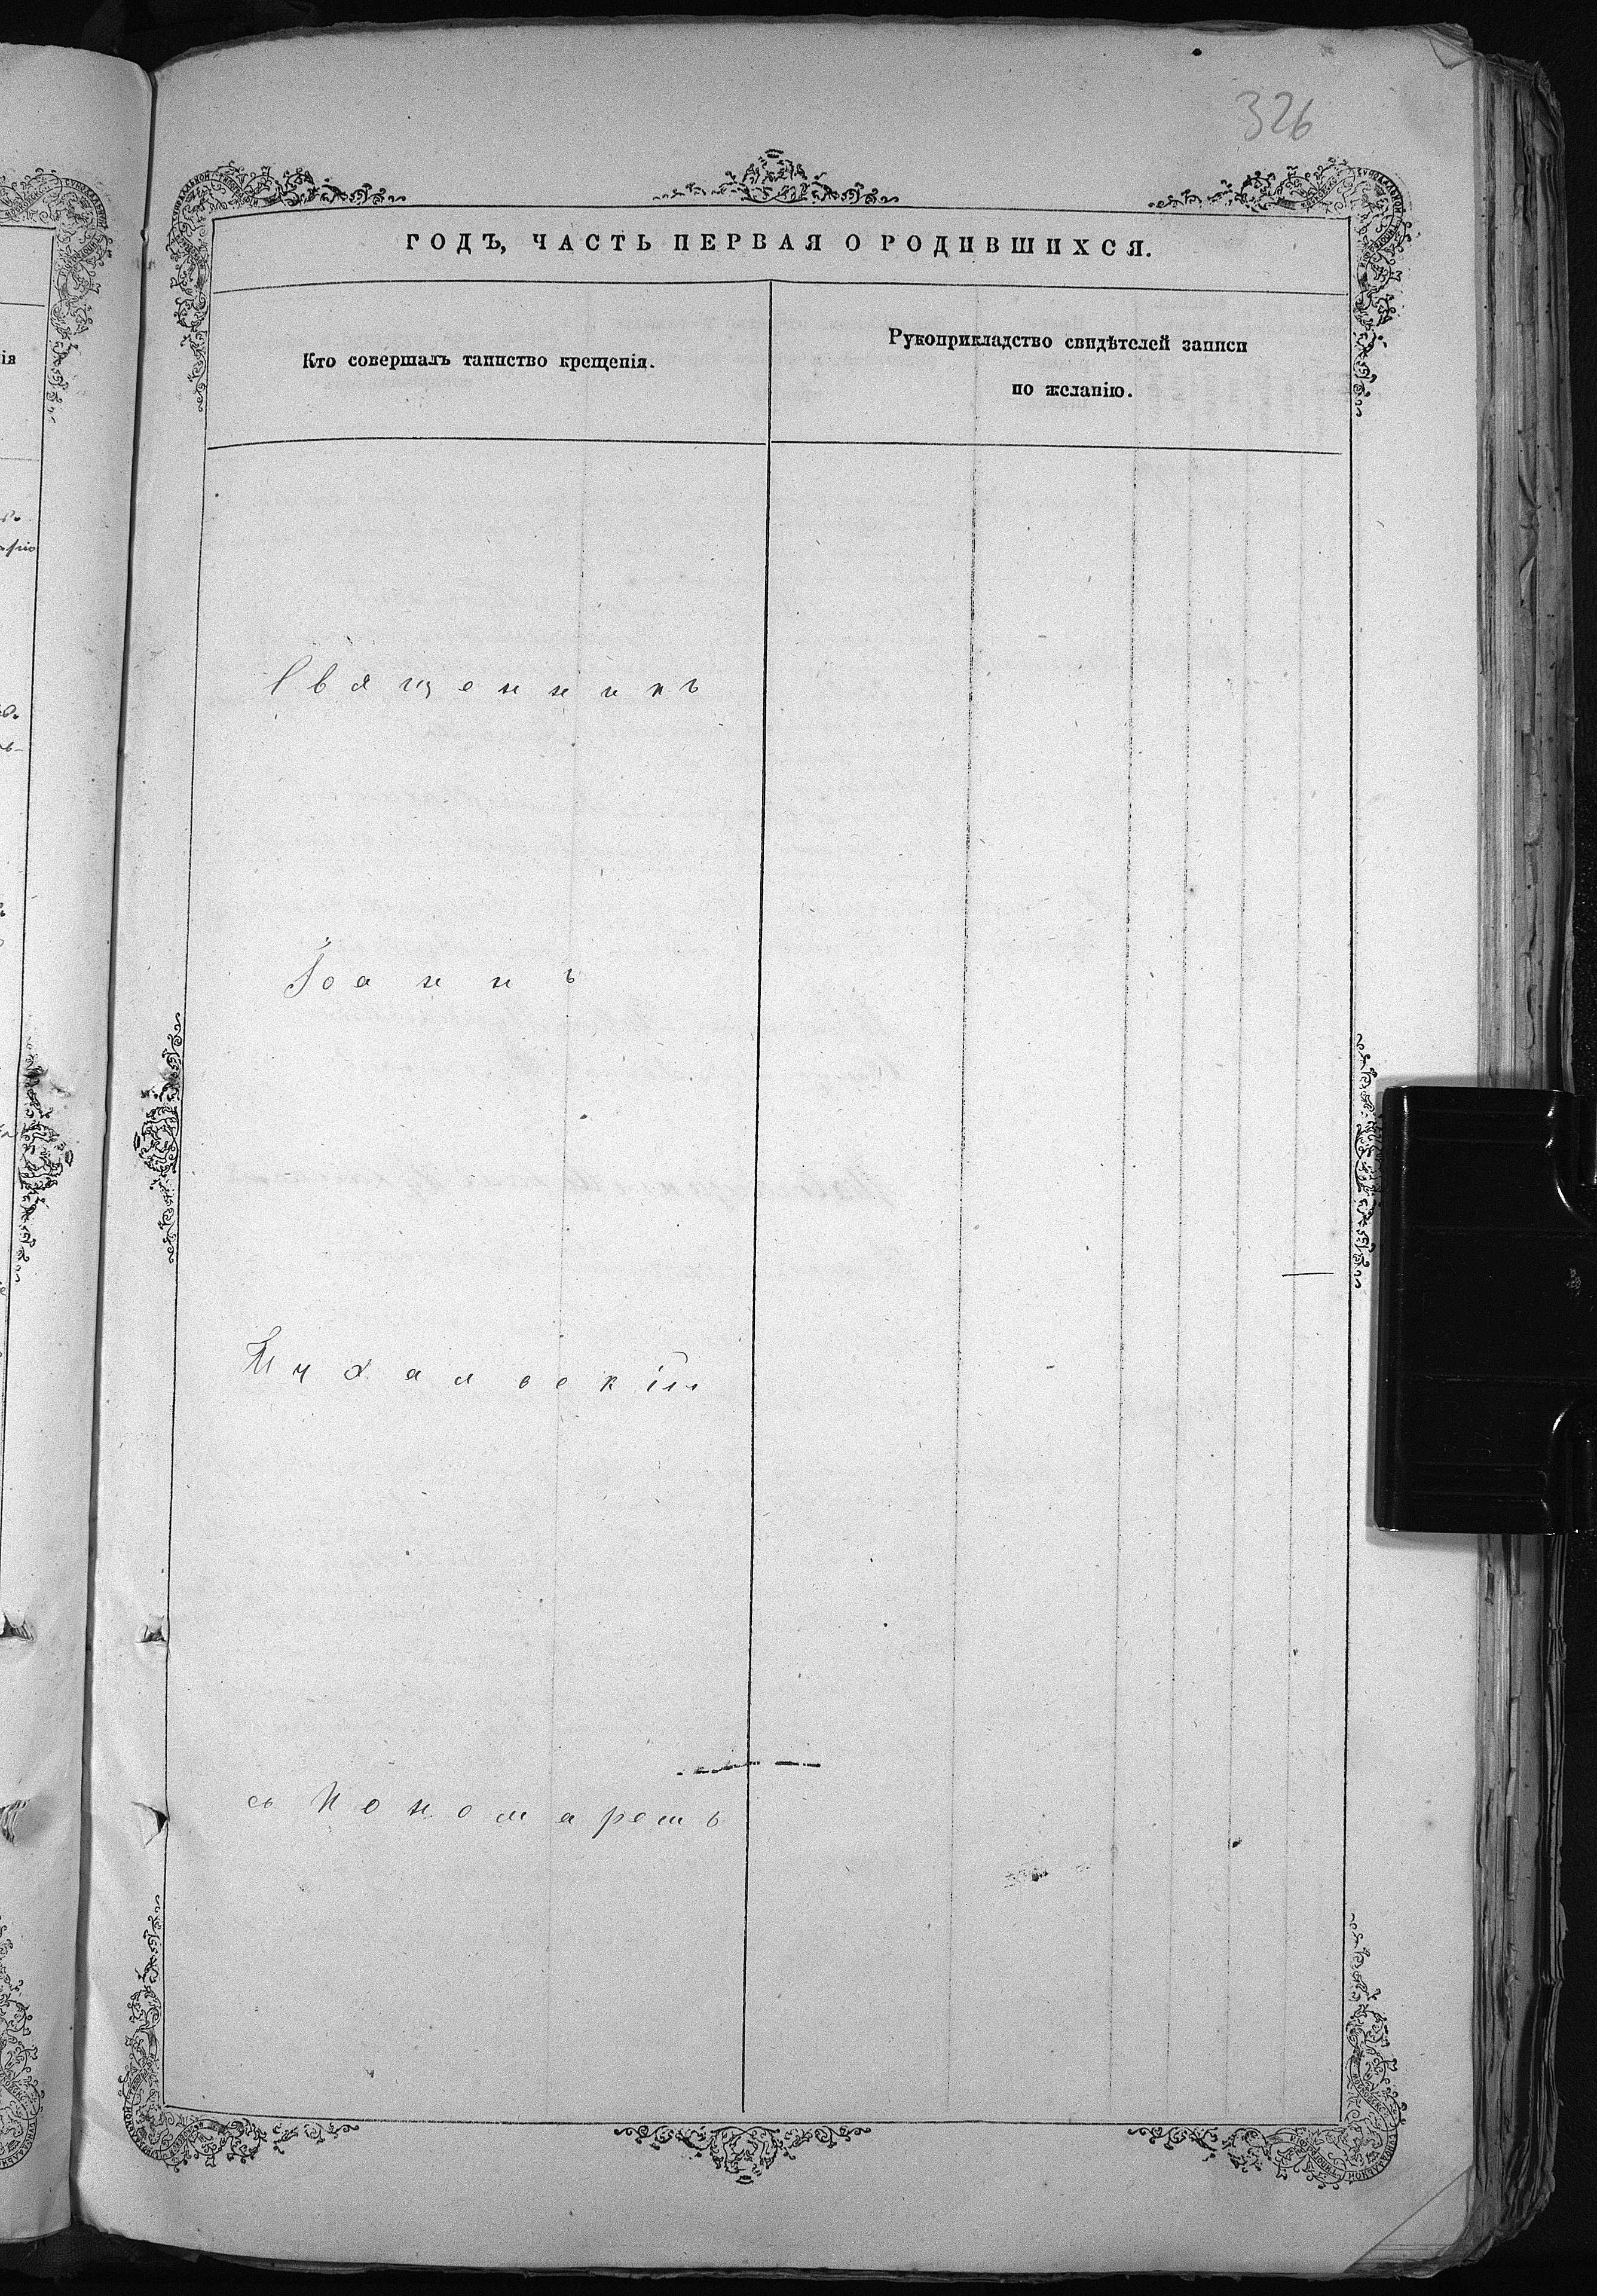 326
ГОДЪ, ЧАСТЬ ПЕРВАЯ О РОДИВШИХСЯ.
Кто совершалъ таинство крещенія.
Рукоприкладство свидѣтелей записи
по желанію.
Священникъ
Іоаннъ
Михалевскій
съ Пономаремъ